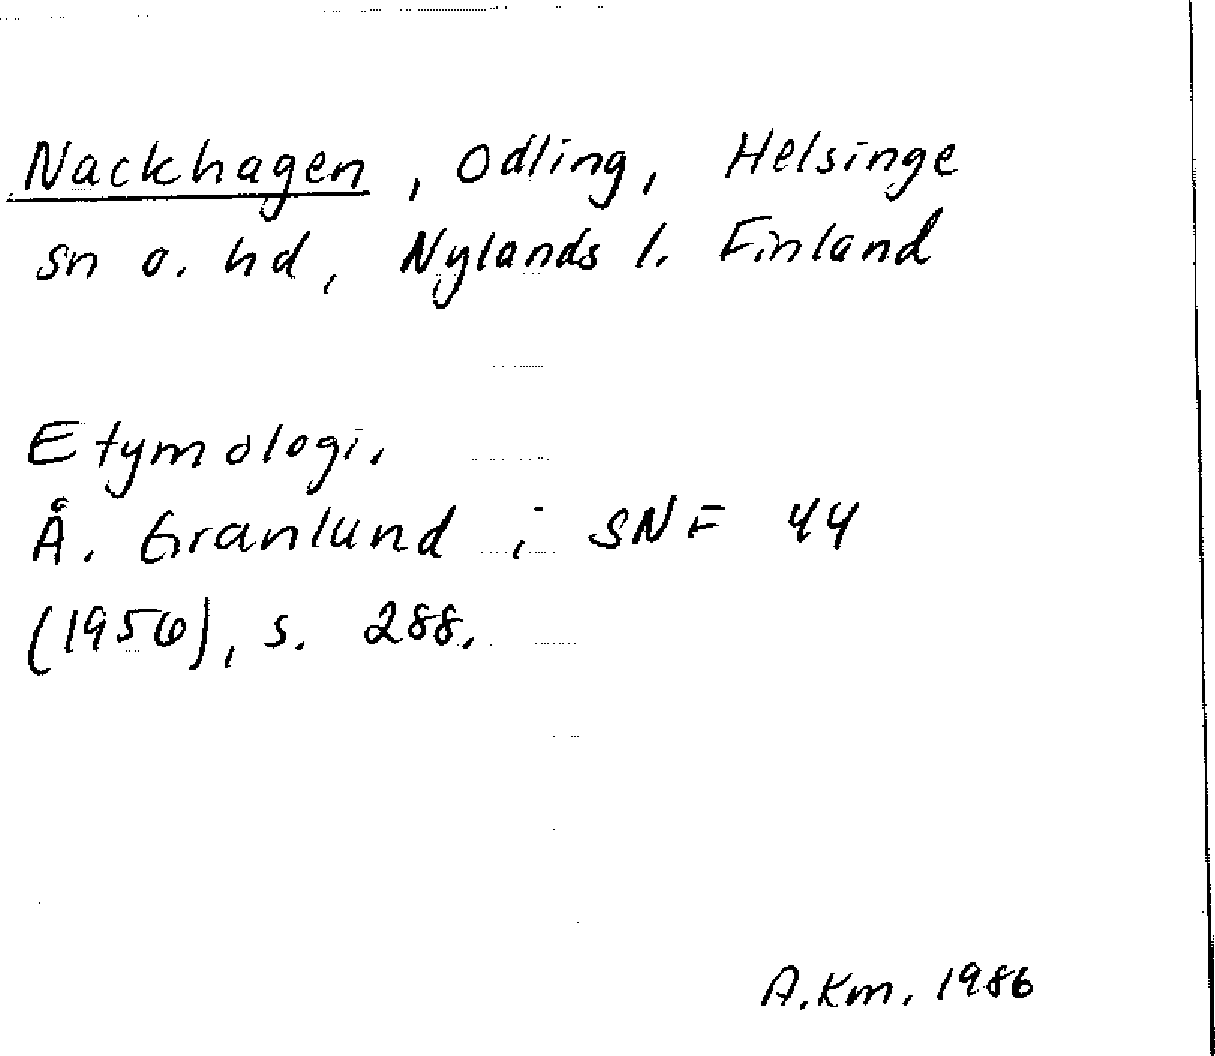 Nackhagen, odling, Helsinge
sn o. hd, Nylands l. Finland
Etymologi.
Å. Granlund i SNF 44
(1956), s. 288.
A.Km. 1986